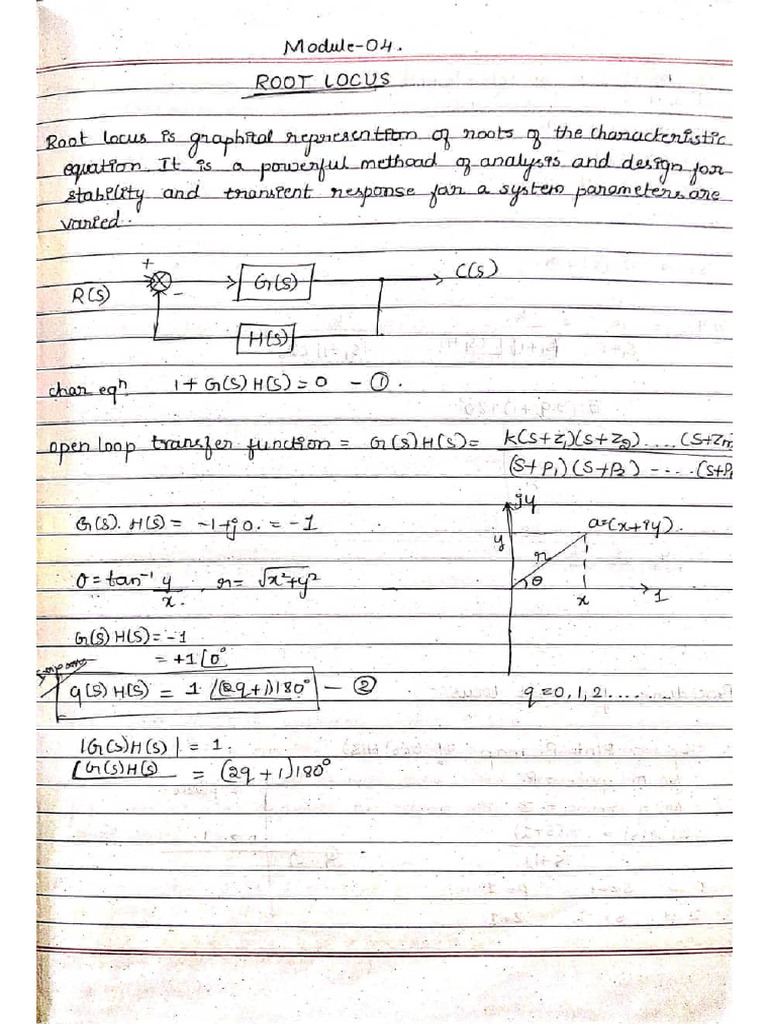 Module-04.
ROOT LOCUS
Root locus is graphital represention of roots of the characteristic
equation. It is a powerful methoad of analysis and design for
stability and transient response for a system parameters are
varied.
+
R(S) - G(S) C(S)
H(S)
char eqⁿ 1 + G(S) H(S) = 0 - ①.
open loop transfer function = G(S) H(S) = K(S+Z₁)(S+Z₂).... (S+Zm
(S+P₁)(S+P₂) -.... (S+P
jy
G(S). H(S) = -1+j0. = -1
y a=(x+iy).
θ = tan⁻¹ y/x. , r = √x²+y²
r θ
x 1
G(S) H(S) = -1
= +1∠0°
G(S) H(S) = 1 ∠(2q+1)180° - ② q=0,1,2.....
|G(S)H(S)| = 1.
∠G(S)H(S) = (2q+1)180°